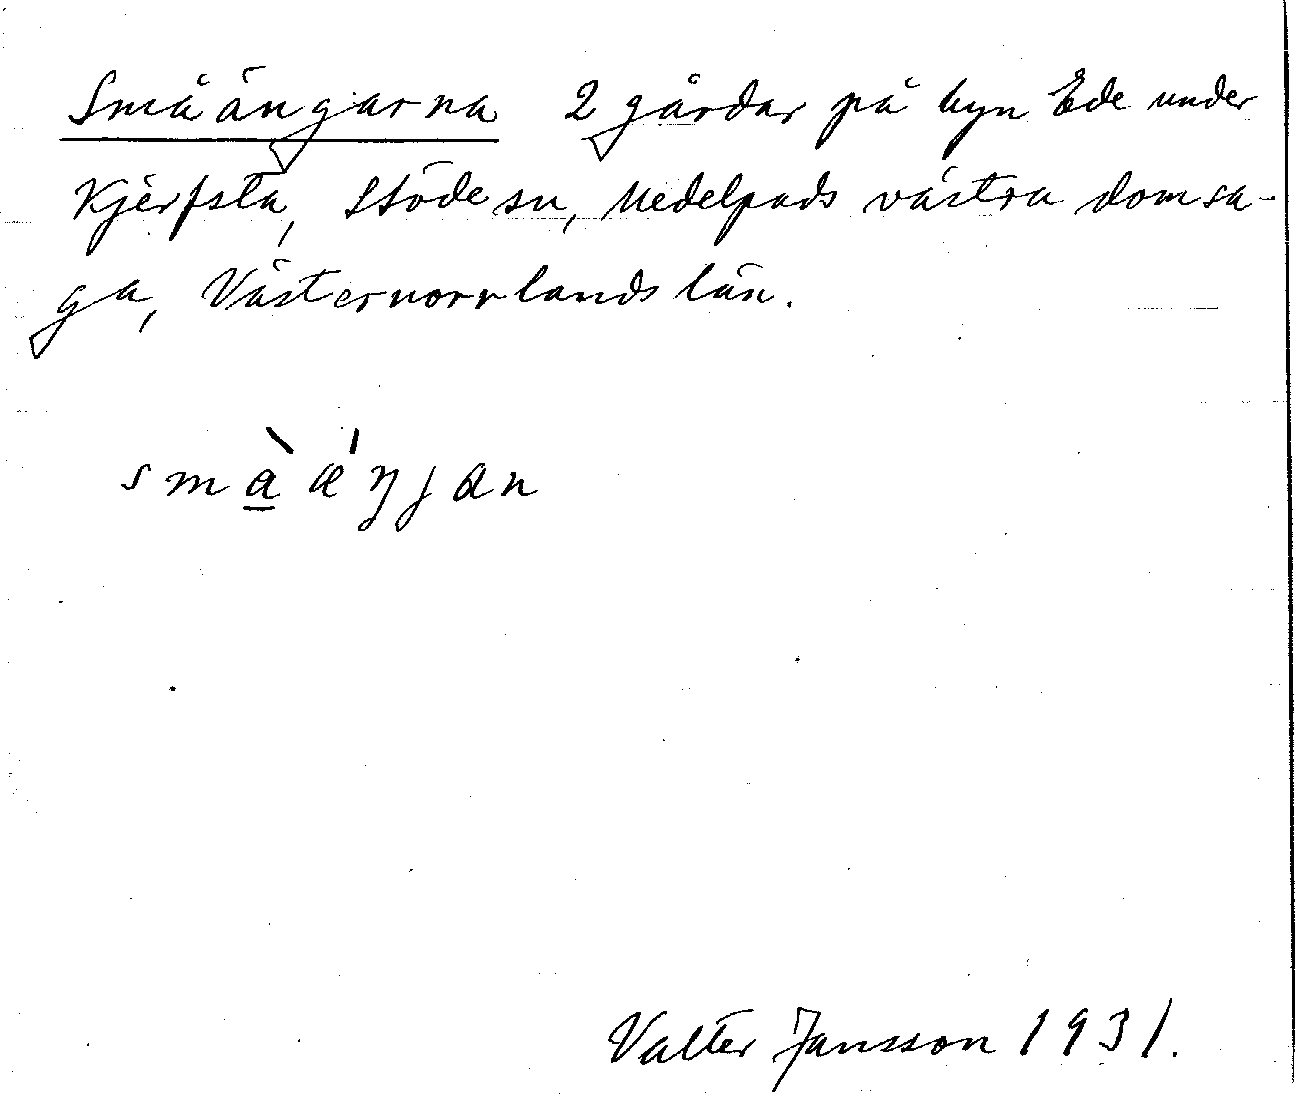 Småängarna 2 gårdar på byn Ede under
Kjerfsta, Stöde sn, Medelpads västra domsa-
ga, Västernorrlands län.
smà̱ǽŋjan
Valter Jansson 1931.